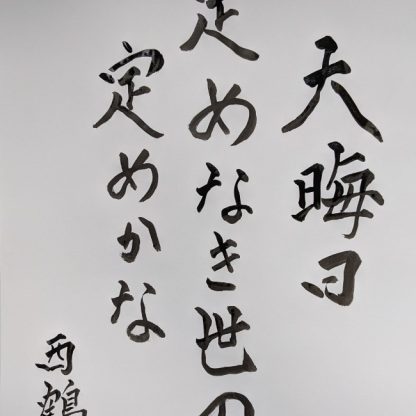 大晦日
定めなき世の
定めかな
西鶴